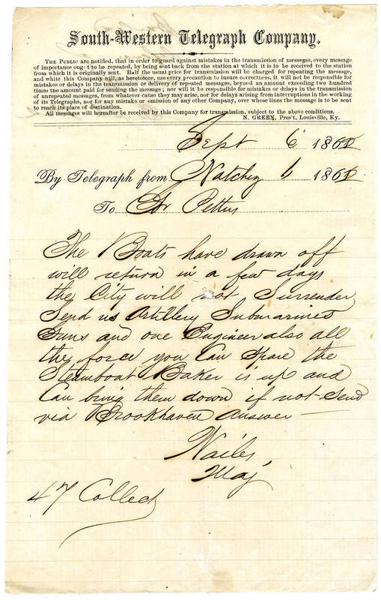 South-Western Telegraph Company.
THE PUBLIC are notified, that in order to guard against mistakes in the transmission of messages, every message
of importance ought to be repeated, by being sent back from the station at which it is to be received to the station
from which it is originally sent. Half the usual price for transmission will be charged for repeating the message,
and while this Company will, as heretofore, use every precaution to insure correctness, it will not be responsible for
mistakes or delays in the transmission or delivery of repeated messages, beyond an amount exceeding two hundred
times the amount paid for sending the message; nor will it be responsible for mistakes or delays in the transmission
of unrepeated messages, from whatever cause they may arise, nor for delays arising from interruptions in the working
of its Telegraphs, nor for any mistake or omission of any other Company, over whose lines the message is to be sent
to reach its place of destination.
All messages will hereafter be received by this Company for transmission, subject to the above conditions.
N. GREEN, Pres't, Louisville, Ky.
Sept 6 1862
By Telegraph from Natchez 6 1862
To Gov Pettus
The Boats have drawn off
will return in a few days
the City will not Surrender
Send us Artillery Submarines
Guns and one Engineer also all
the force you Can Spare the
Steamboat Baker is up and
Can bring them down if not Send
via Brookhaven Answer—
Nailes
Maj
47 Collect